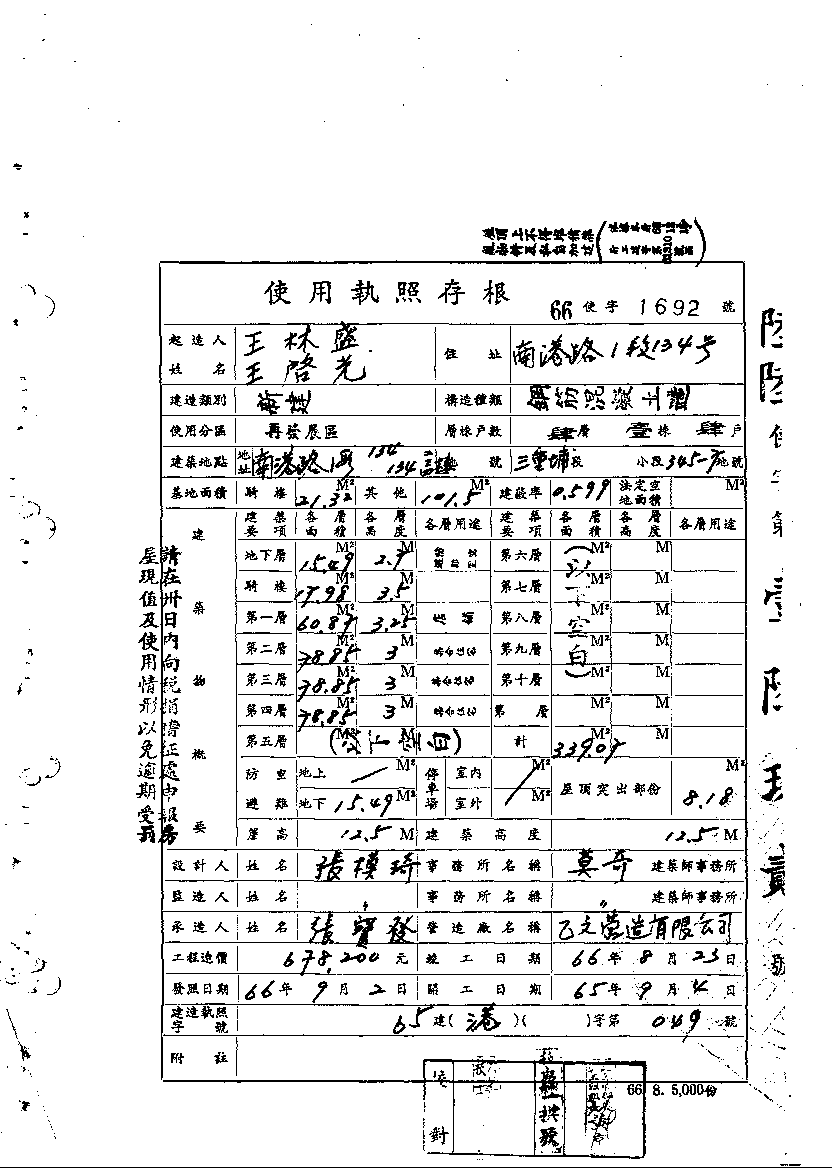 使用執照存根
66 使字 1692 號
起造人姓名 王林盛 王啓光 住址 南港路1段134号
建造類別 新建 構造種類 鋼筋混凝土造
使用分區 再發展區 層棟戶數 肆層 壹棟 肆戶
建築地點 地址 南港路 134 號 三重埔段 小段 地號
基地面積 騎樓 21.32 M² 其他 101.5 M² 建蔽率 0.599 法定空地面積 M²
建築物概要
建築要項 各層面積 各層高度 各層用途 建築要項 各層面積 各層高度 各層用途
地下層 15.49 M² 2.7 M 第六層 M² M
騎樓 17.98 M² 3.5 M 第七層 M² M
第一層 60.87 M² 3.25 M 第八層 M² M
第二層 78.85 M² 3 M 第九層 M² M
第三層 78.85 M² 3 M 第十層 M² M
第四層 78.85 M² 3 M 第 層 M² M
(以下空白)
第五層 M² (以下空白) M 計 339.07 M² M
防空避難 地上 / M² 停車場 室內 / M² 屋頂突出部份 8.18 M²
地下 15.49 M² 室外 M²
簷高 12.5 M 建築高度 12.5 M
設計人 姓名 張模琦 事務所名稱 莫奇 建築師事務所
監造人 姓名 〃 事務所名稱 〃 建築師事務所
承造人 姓名 張寶發 營造廠名稱 乙元營造有限公司
工程造價 678,200 元 竣工日期 66年8月23日
發照日期 66年9月2日 開工日期 65年9月4日
建造執照字號 65建(港)( )字第 049 號
附註
66. 8. 5,000份
校對
請在卅日內向稅捐稽征處申報房
屋現值及使用情形以免逾期受罰